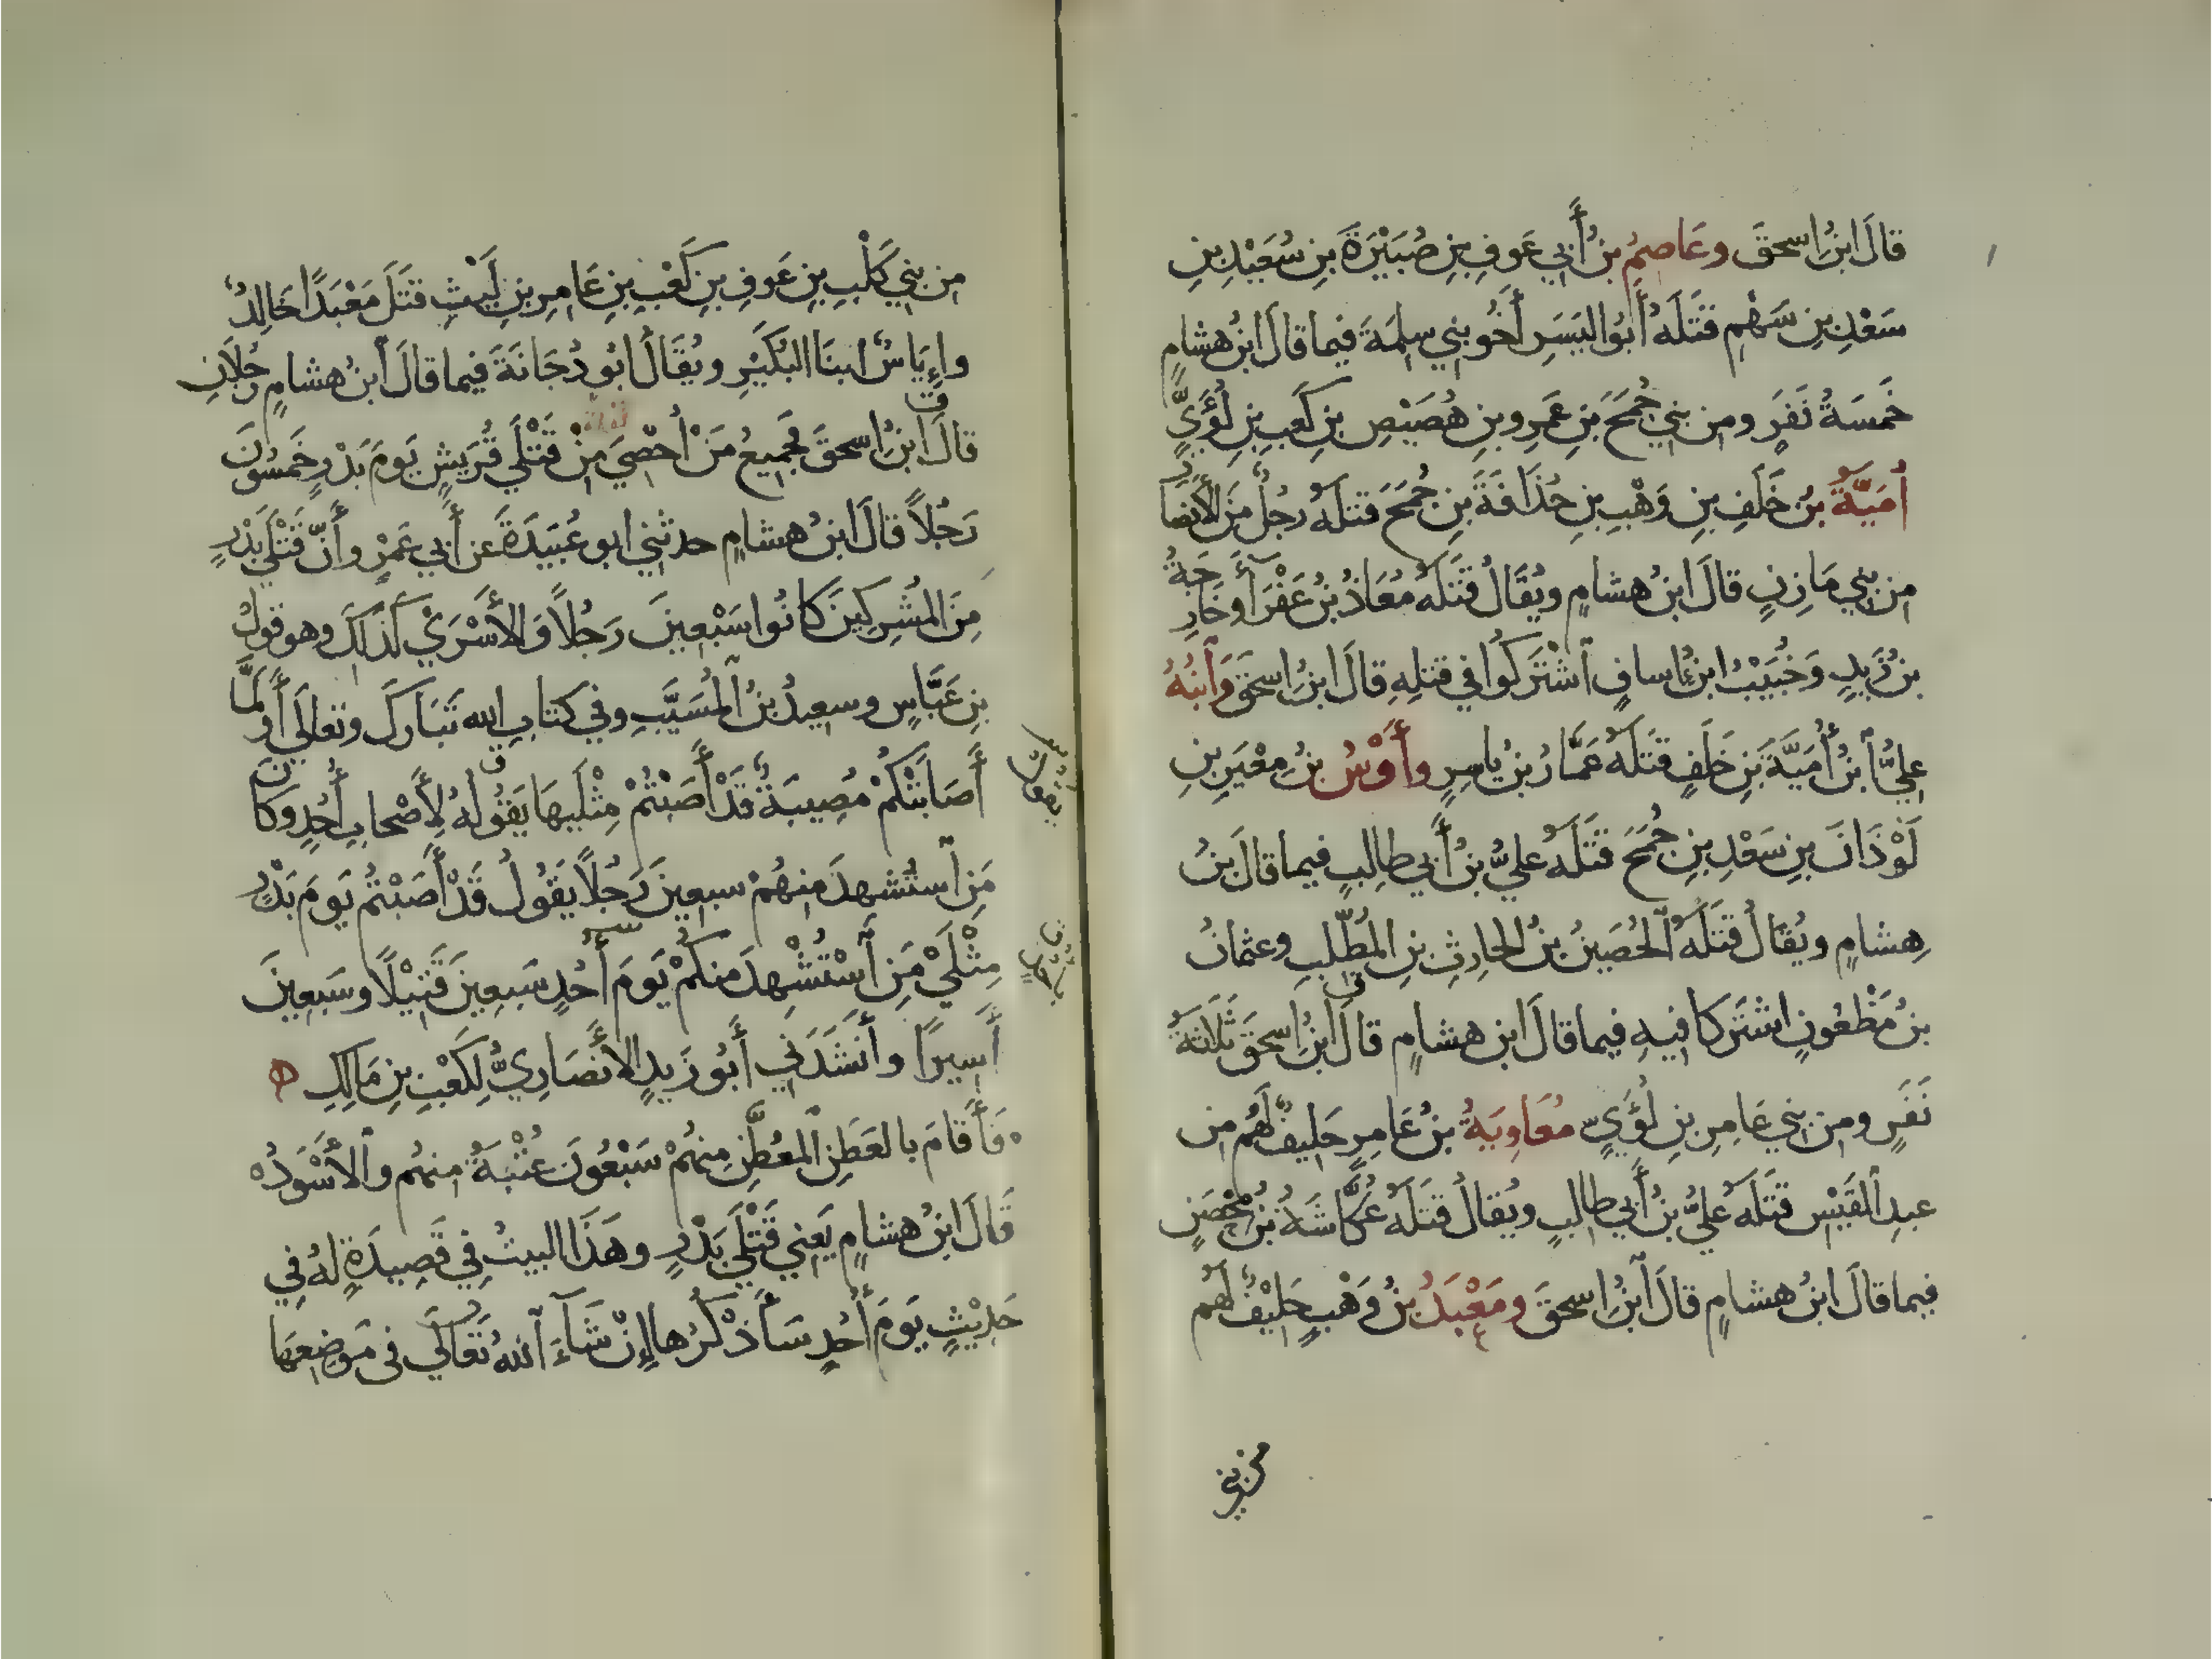 قالَ ابنُ اسحقَ وعَاصِمُ بنُ أَبي عَوفِ بنِ صُبَيْرَةَ بنِ سُعَيْدِ بنِ
سَعْدِ بنِ سَهْمٍ قَتَلَهُ أَبُو اليَسَرِ أَخُو بني سلِمَةَ فيما قالَ ابنُ هشامٍ
خَمسَةُ نَفَرٍ ومن بني جُمَحَ بنِ عَمرِو بنِ هُصَيْصِ بنِ كَعبِ بنِ لُؤَيٍّ
أُمَيَّةُ بنُ خَلَفِ بنِ وَهْبِ بنِ حُذَافَةَ بنِ جُمَحَ قتلَهُ رجُلٌ منَ الأَنصار
من بني مَازِنٍ قالَ ابنُ هشامٍ ويُقَالُ قَتَلَهُ مُعَاذُ بنُ عَفْرَآءَ وخَارِجَةُ
بنُ زَيدٍ وَخُبَيْبُ ابنُ اسافٍ ٱشْتَرَكُوا في قتلِهِ قالَ ابنُ اسحقَ وَٱبنُهُ
عليُّ ٱبنُ أُمَيَّةَ بنِ خَلَفٍ قَتَلَهُ عَمَّارُ بنُ ياسِرٍ وأَوْسُ بنُ مِعْيَرِ بنِ
لَوْذَانَ بنِ سَعْدِ بنِ جُمَحَ قَتَلَهُ عليُّ بنُ أَبي طالِبٍ فيما قالَ بنُ
هِشامٍ ويُقَالُ قَتَلَهُ ٱلحُصَينُ بنُ الحارِثِ بنِ المُطَّلِبِ وعثمانُ
بنُ مَظْعُونٍ اشتَركَا فيهِ فيما قالَ ابن هشامٍ قالَ ابنُ اسحقَ ثَلَاثَةُ
نَفَرٍ ومن بني عَامِرِ بنِ لُؤَيٍّ مُعَاوِيَةُ بنُ عَامِرٍ حَليفٌ لَهُم من
عبدِ ٱلقَيْسِ قَتَلَهُ عليُّ بنُ أَبي طالبٍ ويُقالُ قَتَلَهُ عُكَّاشَةُ بنُ مِحْصَنٍ
فيما قالَ ابنُ هشامٍ قالَ ٱبنُ اسحقَ ومَعْبَدُ بنُ وَهْبٍ حَلِيْفٌ لَهُم
من بني
من بني كَلْبِ بنِ عَوفِ بنِ كَعْبِ بنِ عَامِرِ بنِ لَيْثٍ قَتَلَ مَعْبَدًا خَالِدٌ
وإِيَاسٌ ابنَا البُكَيْرِ ويُقَالُ ابُو دُجَانَةَ فيما قالَ ٱبنُ هشامٍ رجُلَانِ
قالَ ابنُ اسحقَ فجميعُ مَنْ أُحْصِيَ مِنْ قَتْلَى قُرَيشٍ يَومَ بَدْرٍ خَمسُونَ
رَجُلاً قالَ ابنُ هشامٍ حدثني ابو عُبَيدَةَ عن أَبي عَمْرٍو أَنَّ قَتْلَى بَدْرٍ
مِنَ المُشرِكِينَ كانُوا سَبْعِينَ رَجُلاً وَالأَسْرَى كَذَلكَ وهو قولُ
بنِ عَبَّاسٍ وسعيدُ بنُ ٱلمُسَيَّبِ وفي كتابِ الله تَبَارَكَ وتعالَى أَوَلَمَّا
أَصَابَتْكُمْ مُصِيبَةٌ قَدْ أَصَبْتُمْ مِثْلَيهَا يَقُولهُ لأَصْحابِ أُحُدٍ وكانَ
مَنِ ٱستُشهِدَ منهُمْ سبعينَ رَجُلاً يقُولُ قَدْ أَصَبْتُم يَومَ بَدْرٍ
مِثْلَيْ مَنِ ٱسْتُشْهِدَ منكُمْ يَومَ أُحُدٍ سَبعِينَ قَتِيْلًا وسَبعِينَ
أَسِيرًا وأَنشَدَني أَبُو زَيدٍ الأَنصَارِيُّ لِكَعْبِ بنِ مَالِكٍ ه
فَأَقَامَ بالعَطَنِ ٱلمُعَطَّنِ مِنهُمْ سَبْعُونَ عُتْبَةُ منهُم وٱلأَسْوَدُ
قَالَ ابنُ هشامٍ يَعني قَتْلَى بَدْرٍ وهَذَا البيتُ فِي قَصِيدَةٍ لهُ في
حَدِيْثِ يَومَ أُحُدٍ سَأَذْكُرُها إِنْ شَآءَ ٱللهُ تَعَالَى فى مَوضِعِهَا